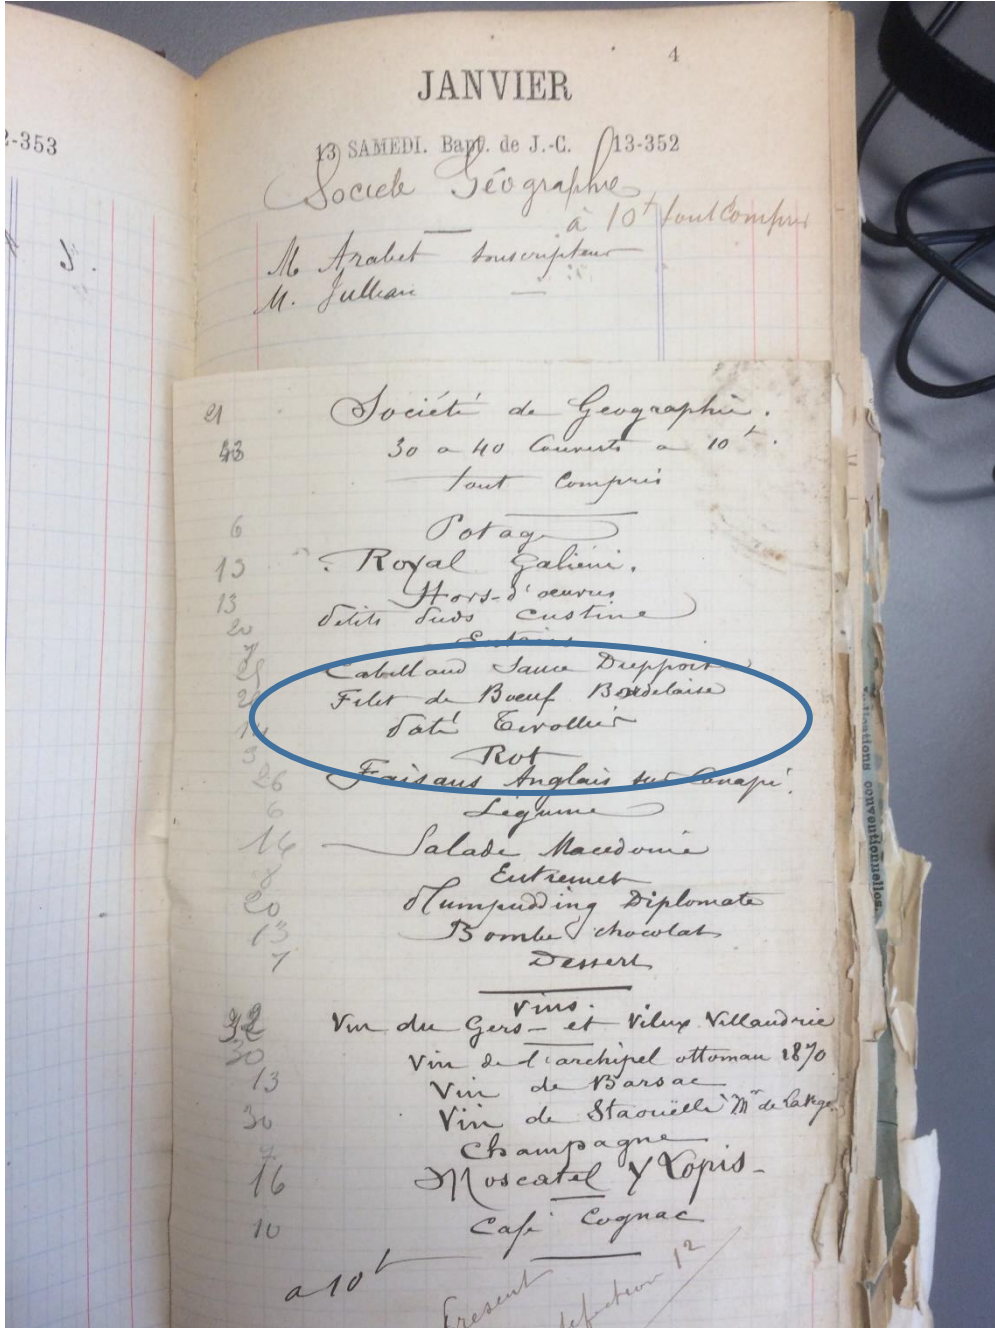 2-353
4
JANVIER
13 SAMEDI. Bapt. de J.-C. 13-352
Société Géographie
à 10f tout Compris
M Arabet souscripteur
M. Jullian —
21 Société de Geographie.
43 30 a 40 Couverts a 10f.
tout Compris
6 Potage
13 Royal Galiéni.
13 Hors-d'oeuvres
20 Petits Ducs Custine
7 Entrées
Cabillaud Sauce Dieppoise
Filet de Boeuf Bordelaise
14 Pâté Tivollier
3 Rot
26 Faisans Anglais sur Canapé.
6 Légume
14 Salade Macedoine
Entremet
20 Plumpudding Diplomate
13 Bombe chocolat
7 Dessert
Vins.
32 Vin du Gers - et Vieux Villaudric
30 Vin de l'archipel ottoman 1870
13 Vin de Barsac
30 Vin de Staouëlli Mr de
7 Champagne
16 Moscatel y Lopis -
10 Café Cognac
a 10f
Present
defection 12
conventionnelles.